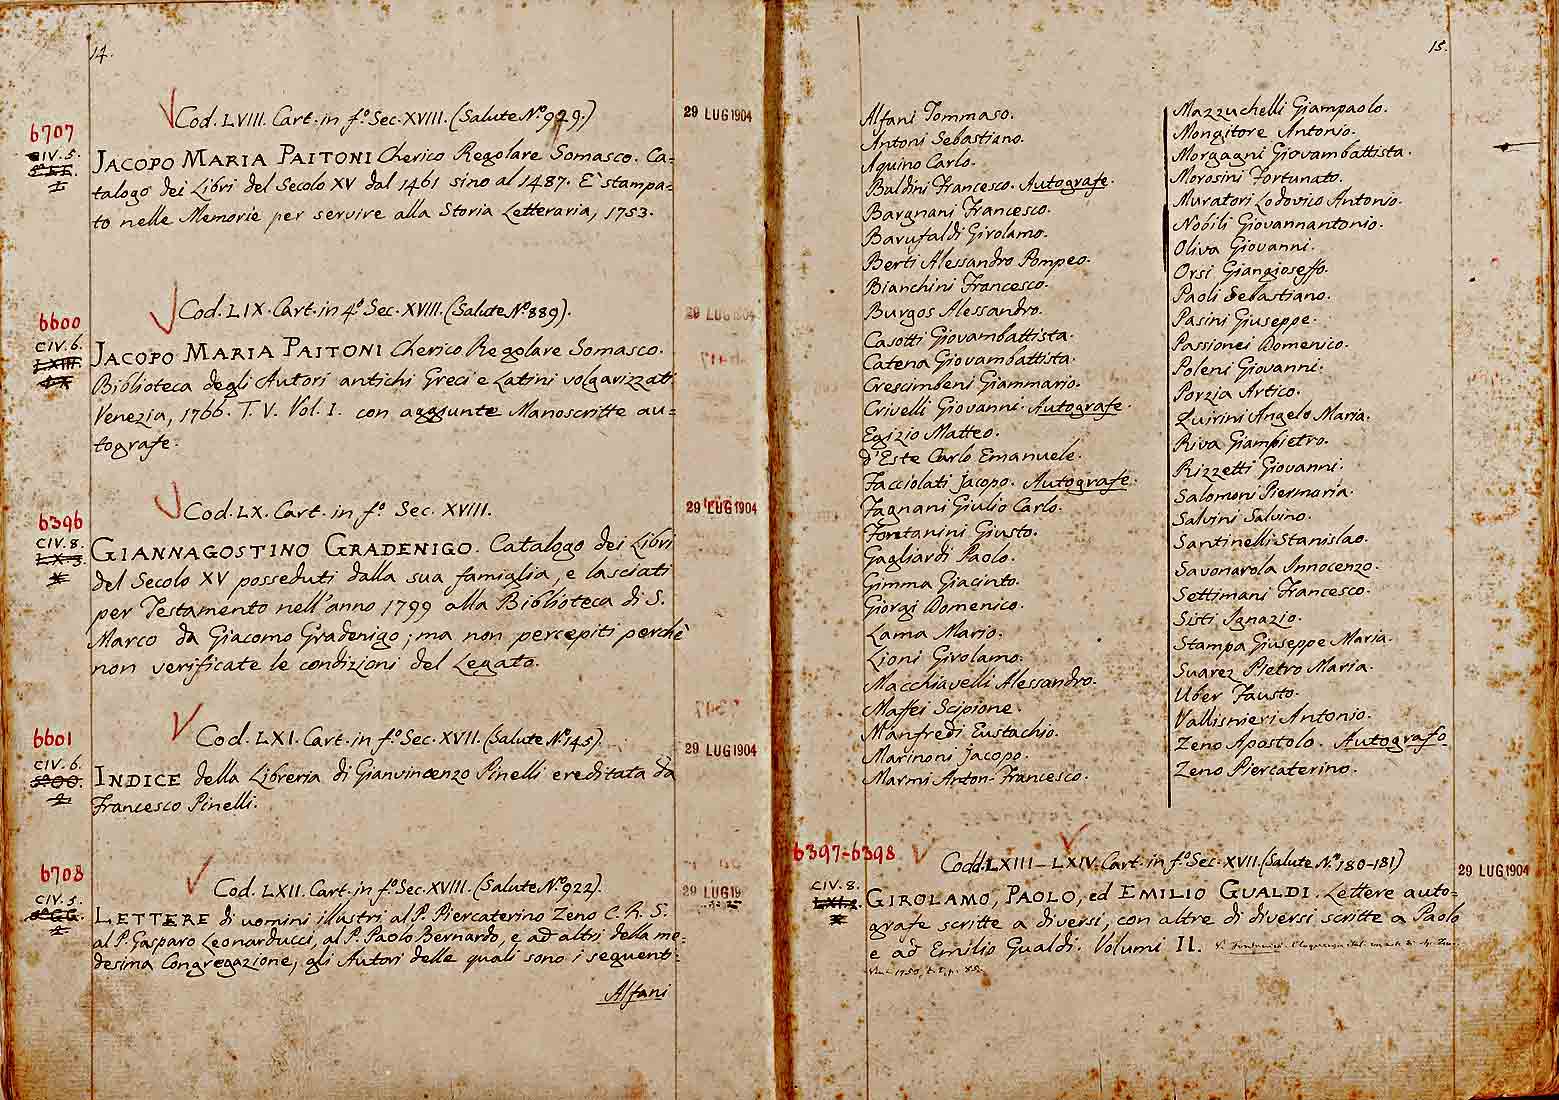 14.
Cod. LVIII. Cart. in f.º Sec. XVIII. (Salute Nº. 929.)
29 LUG 1904
6707
CIV. 5.
JACOPO MARIA PAITONI Cherico Regolare Somasco. Ca=
talogo dei Libri del Secolo XV dal 1461 sino al 1487. E' stampa=
to nelle Memorie per servire alla Storia Letteraria, 1753.
Cod. LIX. Cart. in 4º. Sec. XVIII. (Salute Nº. 889).
29 LUG 1904
6600
CIV. 6.
LXIII.
JACOPO MARIA PAITONI Cherico Regolare Somasco.
Biblioteca degli Autori antichi Greci e Latini volgarizzati
Venezia, 1766. T. V. Vol. I. con aggiunte Manoscritte au=
tografe.
Cod. LX. Cart. in f.º Sec. XVIII.
29 LUG 1904
6396
CIV. 8.
GIANNAGOSTINO GRADENIGO. Catalogo dei Libri
del Secolo XV posseduti dalla sua famiglia, e lasciati
per Testamento nell'anno 1799 alla Biblioteca di S.
Marco da Giacomo Gradenigo; ma non percepiti perchè
non verificate le condizioni del Legato.
Cod. LXI. Cart. in f.º Sec. XVII. (Salute Nº. 145).
29 LUG 1904
6601
CIV. 6.
INDICE della Libreria di Gianvincenzo Pinelli ereditata da
Francesco Pinelli.
Cod. LXII. Cart. in f.º Sec. XVIII. (Salute Nº. 922).
29 LUG 19
6708
CIV. 5.
LETTERE di uomini illustri al P. Piercaterino Zeno C. R. S.
al P. Gasparo Leonarducci, al P. Paolo Bernardo, e ad altri della me=
desima Congregazione, gli Autori delle quali sono i seguenti:
Alfani
15.
Alfani Tommaso.
Antoni Sebastiano.
Aquino Carlo.
Baldini Francesco. Autografe.
Bargnani Francesco.
Barufaldi Girolamo.
Berti Alessandro Pompeo.
Bianchini Francesco.
Burgos Alessandro.
Casotti Giovambattista.
Catena Giovambattista.
Crescimbeni Giammario.
Crivelli Giovanni. Autografe.
Egizio Matteo.
d'Este Carlo Emanuele.
Facciolati Jacopo. Autografe.
Fagnani Giulio Carlo.
Fontanini Giusto.
Gagliardi Paolo.
Gimma Giacinto.
Giorgi Domenico.
Lama Mario.
Lioni Girolamo.
Macchiavelli Alessandro.
Maffei Scipione.
Manfredi Eustachio.
Marinoni Jacopo.
Marmi Anton-Francesco.
Mazzuchelli Giampaolo.
Mongitore Antonio.
Morgagni Giovambattista.
Morosini Fortunato.
Muratori Lodovico Antonio.
Nobili Giovannantonio.
Oliva Giovanni.
Orsi Giangioseffo.
Paoli Sebastiano.
Pasini Giuseppe.
Passionei Domenico.
Poleni Giovanni.
Porzia Artico.
Quirini Angelo Maria.
Riva Giampietro.
Rizzetti Giovanni.
Salomoni Piermaria.
Salvini Salvino.
Santinelli Stanislao.
Savonarola Innocenzo.
Settimani Francesco.
Sisti Ignazio.
Stampa Giuseppe Maria.
Suarez Pietro Maria.
Uber Fausto.
Vallisnieri Antonio.
Zeno Apostolo. Autografo
Zeno Piercaterino.
6397-6398
Codd. LXIII-LXIV. Cart. in f.º Sec. XVII. (Salute Nº. 180-181)
29 LUG 1904
CIV. 8.
GIROLAMO, PAOLO, ed EMILIO GUALDI. Lettere auto=
grafe scritte a diversi, con altre di diversi scritte a Paolo
e ad Emilio Gualdi. Volumi II.